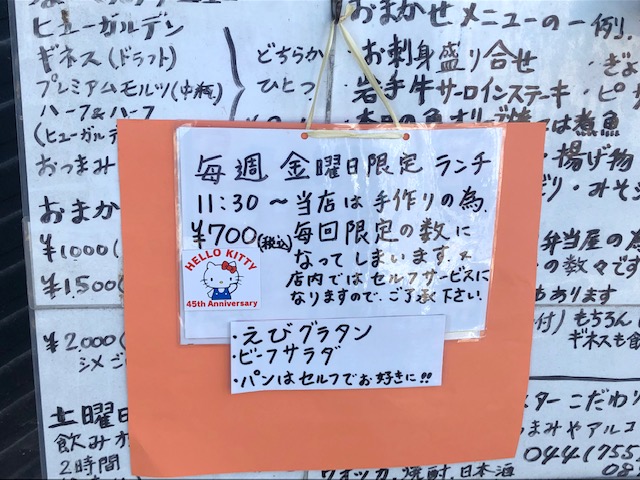 ヒューガルデン
ギネス(ドラフト)
プレミアムモルツ(中瓶)
ハーフ&ハーフ
(ヒューガルデ
どちらか
ひとつ
おつまみ
おまか
¥1000(
¥1,500(
¥2,000(
シメジ
土曜日
飲みか
2時間
おまかせメニューの一例
・お刺身盛り合せ
・岩手牛サーロインステーキ・ピザ
は煮魚
・揚げ物
・みそ
毎週 金曜日限定 ランチ
11:30〜当店は手作りの為、
¥700(税込)毎回限定の数に
なってしまいます。
店内ではセルフサービスに
なりますので、ご了承下さい。
HELLO KITTY
45th Anniversary
・えびグラタン
・ビーフサラダ
・パンはセルフでお好きに!!
弁当屋の
の数々です
もあります
付)もちろん
ギネスも
ターこだわり
まみやアルコ
044(755)
ウォッカ、焼酎、日本酒